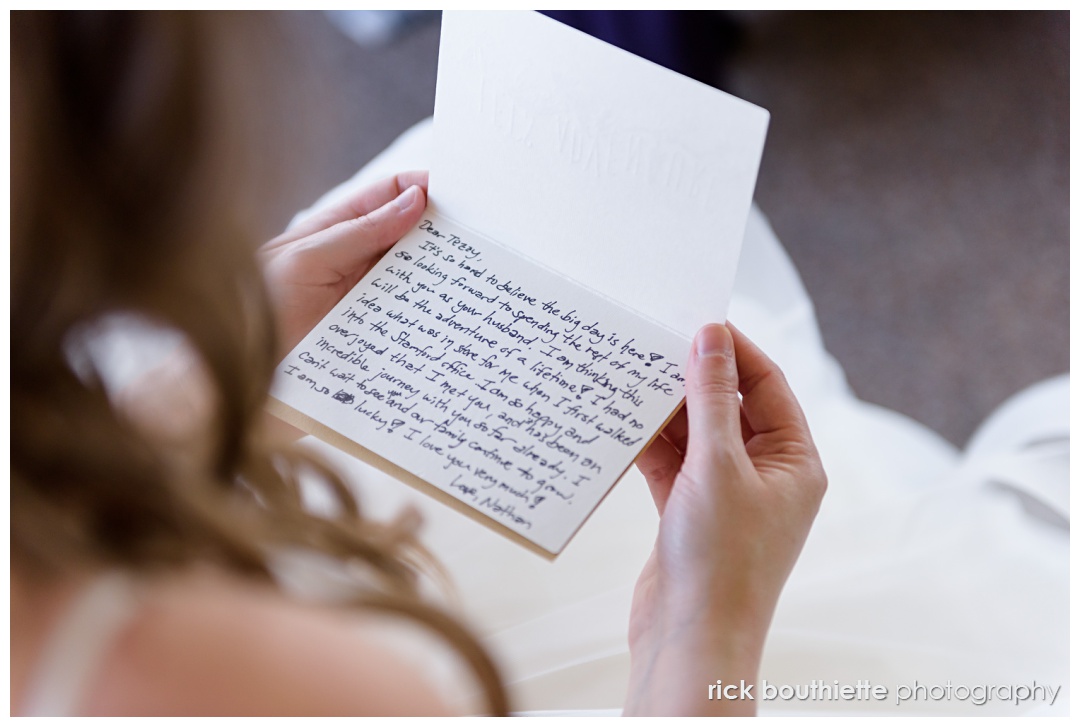 Dear Tezzy,
It's so hard to believe the big day is here! I am
so looking forward to spending the rest of my life
with you as your husband. I am thinking this
will be the adventure of a lifetime! I had no
idea what was in store for me when I first walked
into the Stamford office. I am so happy and
overjoyed that I met you, and has been on
incredible journey with you so far already. I
can't wait to see and our family continue to grow.
I am so lucky! I love you very much!
Love, Nathan
rick bouthiette photography